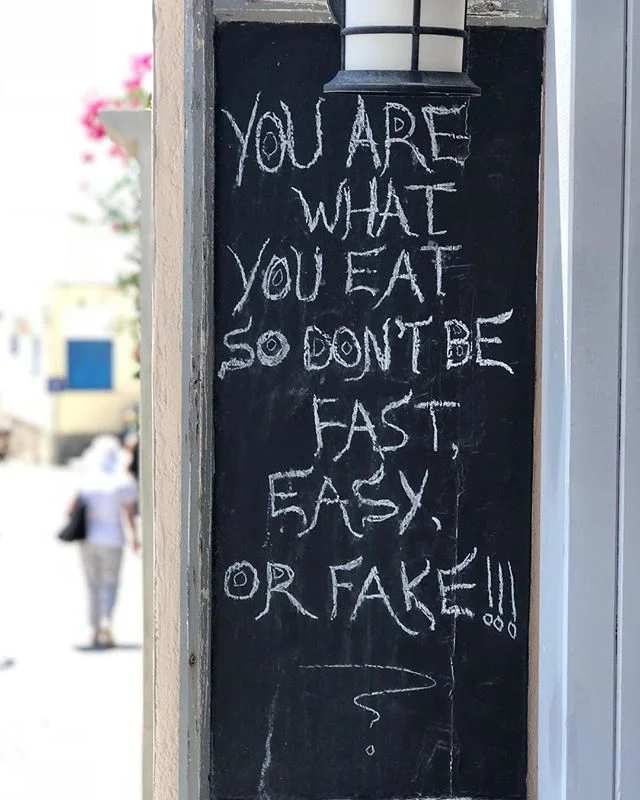 YOU ARE
WHAT
YOU EAT
SO DON'T BE
FAST,
EASY,
OR FAKE!!!